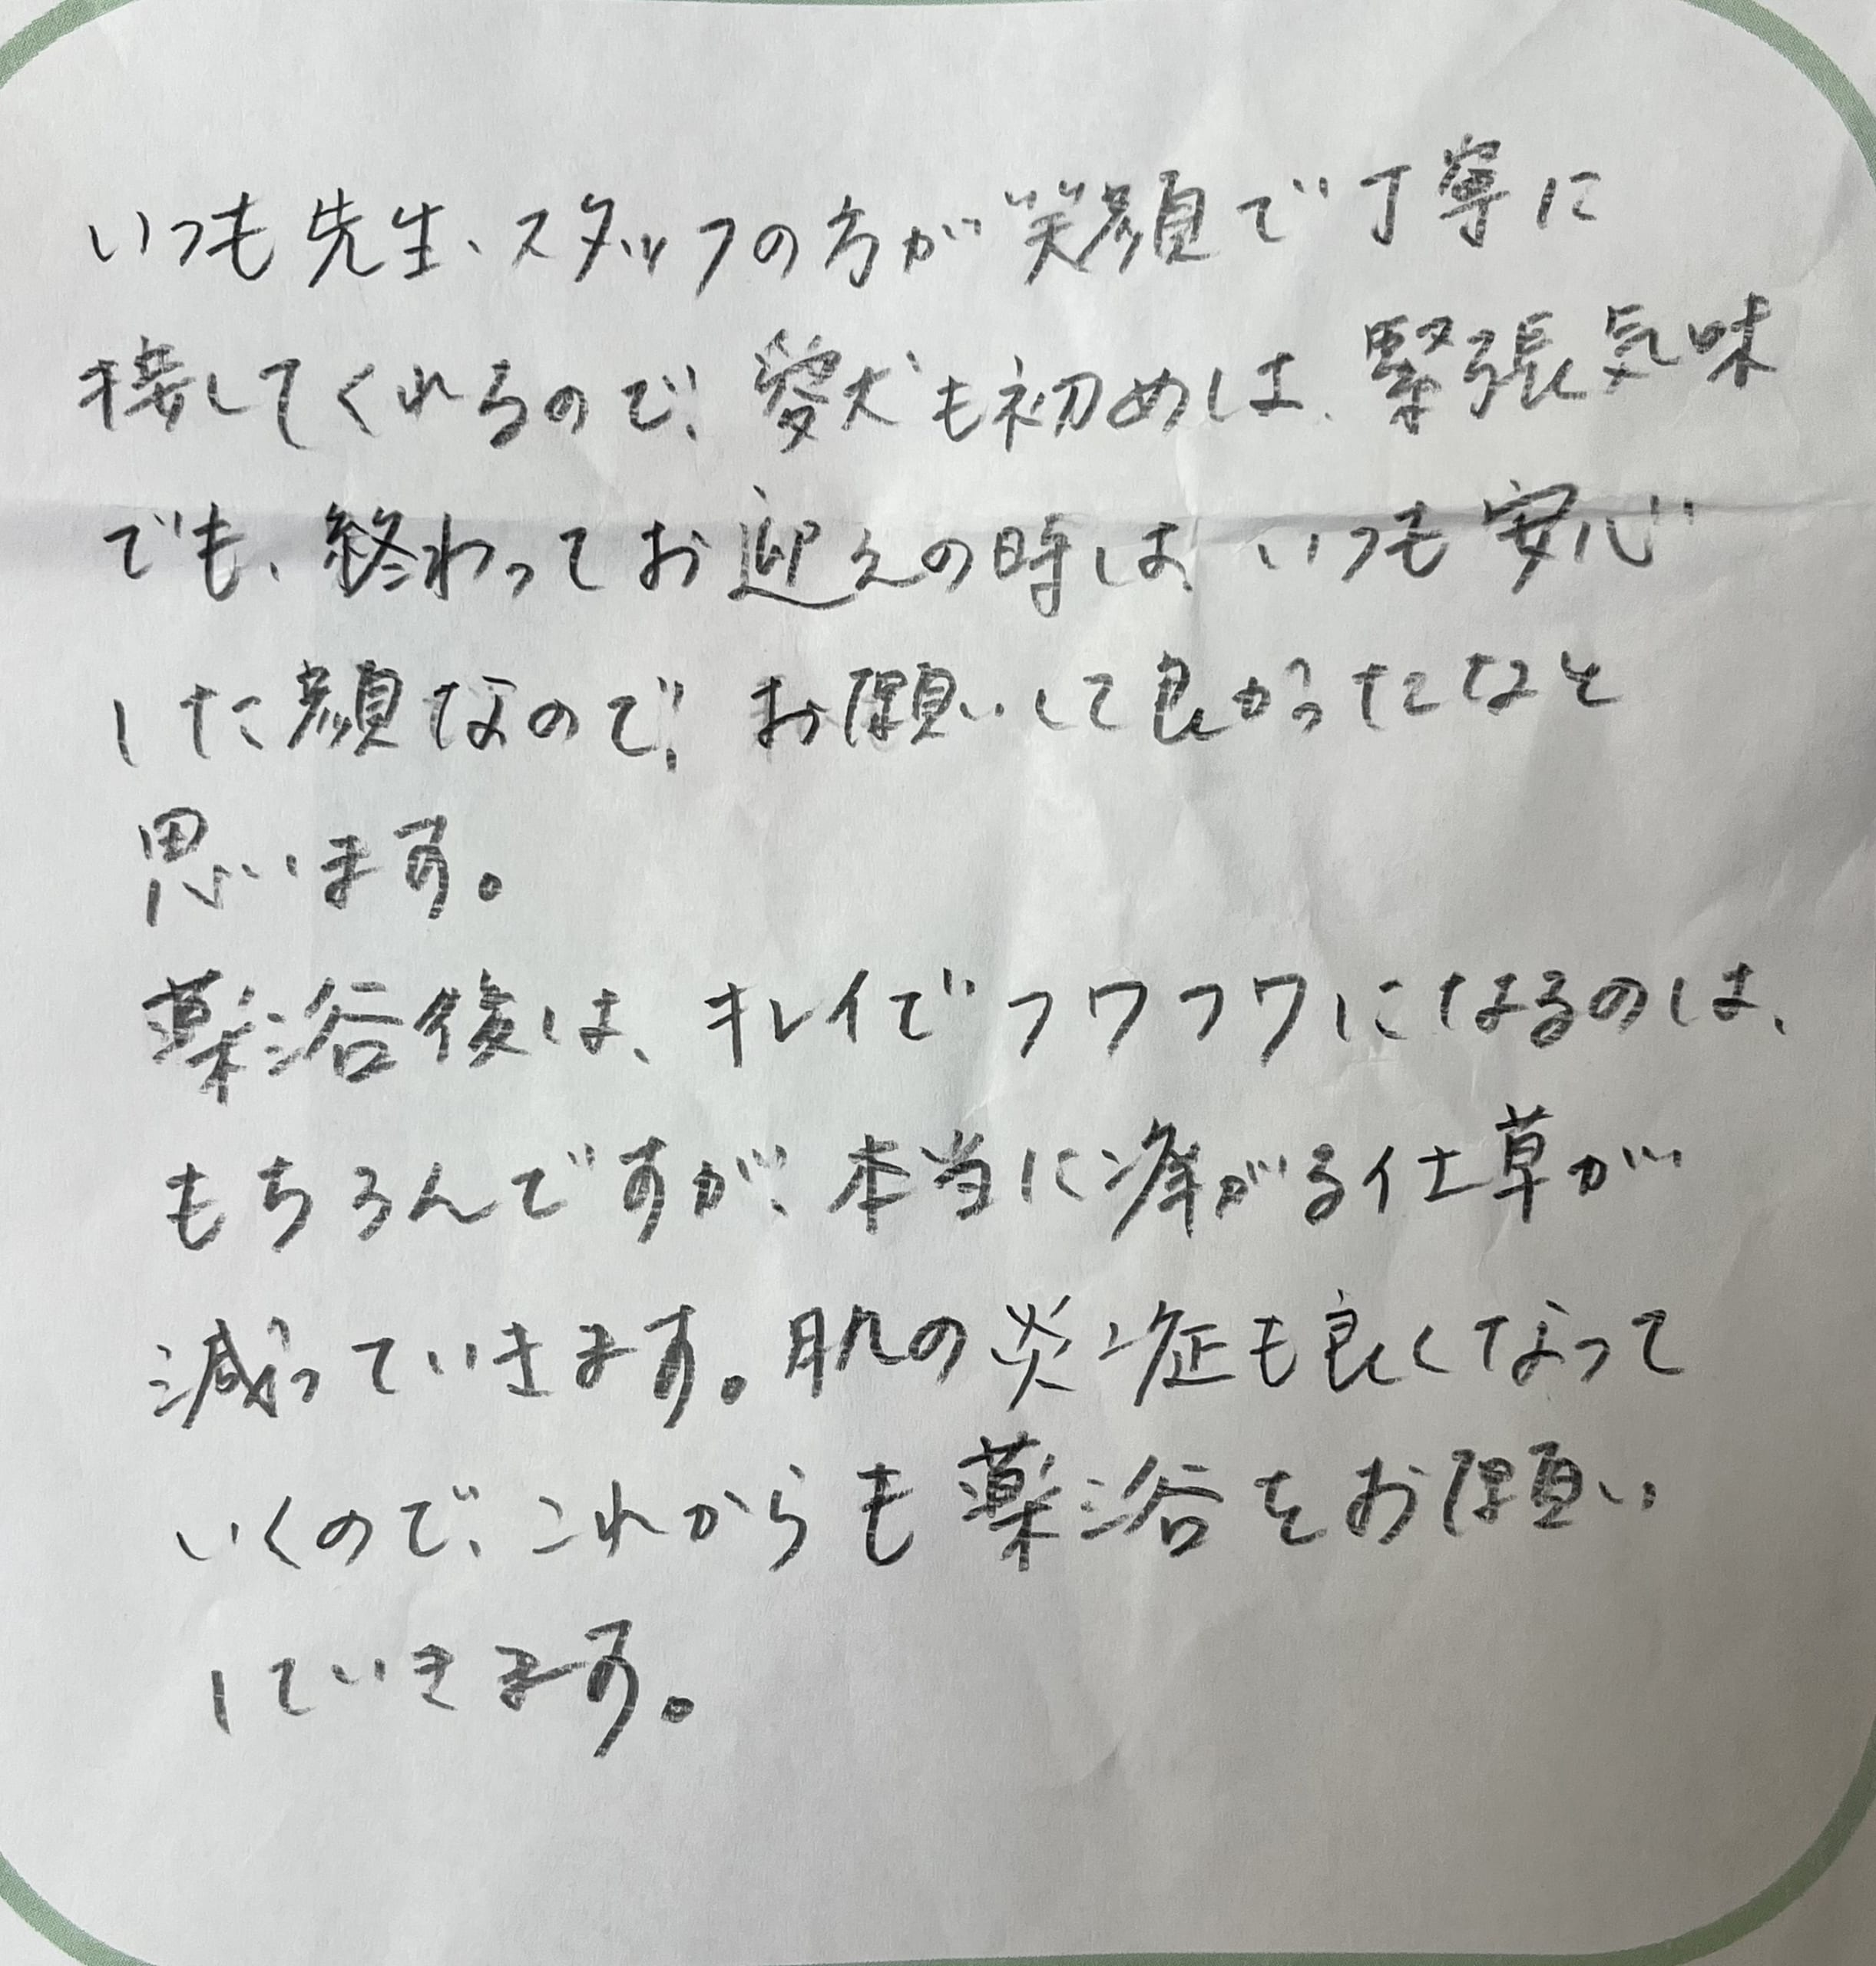 いつも先生、スタッフの方が笑顔で丁寧に
接してくれるので、愛犬も初めは、緊張気味
でも、終わってお迎えの時は、いつも安心
した顔なので、お願いして良かったなと
思います。
薬浴後は、キレイでフワフワになるのは、
もちろんですが、本当に痒がる仕草が
減っていきます。肌の炎症も良くなって
いくので、これからも薬浴をお願い
していきます。